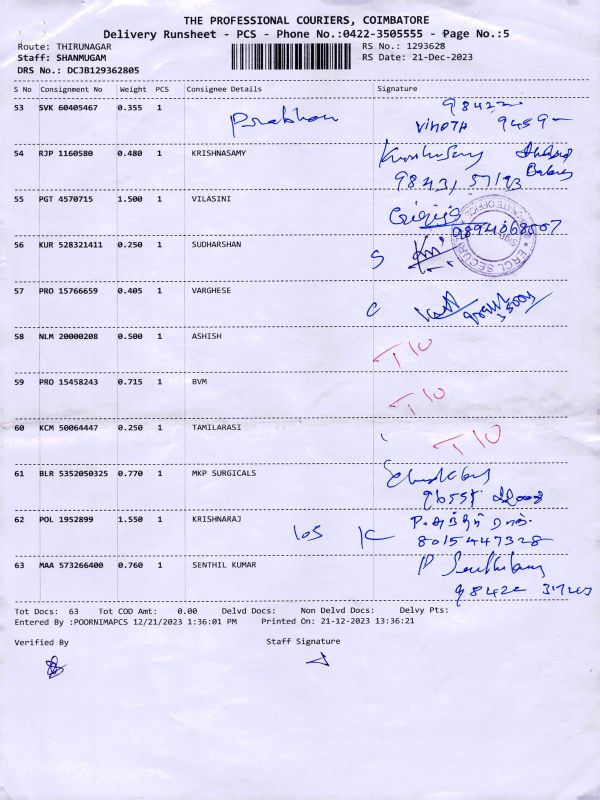 THE PROFESSIONAL COURIERS, COIMBATORE
Delivery Runsheet - PCS - Phone No.:0422-3505555 - Page No.:5
Route: THIRUNAGAR RS No.: 1293628
Staff: SHANMUGAM RS Date: 21-Dec-2023
DRS No.: DCJB129362805
S No Consignment No Weight PCS Consignee Details Signature
53 SVK 60405467 0.355 1 Prabhau 98422
VINOTH 9459
54 RJP 1160580 0.480 1 KRISHNASAMY Krishnasamy
98431 57193
55 PGT 4570715 1.500 1 VILASINI
9894068507
56 KUR 528321411 0.250 1 SUDHARSHAN S
57 PRO 15766659 0.405 1 VARGHESE C
58 NLM 20000208 0.500 1 ASHISH T10
59 PRO 15458243 0.715 1 BVM T10
60 KCM 50064447 0.250 1 TAMILARASI T10
61 BLR 5352050325 0.770 1 MKP SURGICALS
96555
62 POL 1952899 1.550 1 KRISHNARAJ 105 K
8015447328
63 MAA 573266400 0.760 1 SENTHIL KUMAR P Senthil
98422
Tot Docs: 63 Tot COD Amt: 0.00 Delvd Docs: Non Delvd Docs: Delvy Pts:
Entered By :POORNIMAPCS 12/21/2023 1:36:01 PM Printed On: 21-12-2023 13:36:21
Verified By Staff Signature